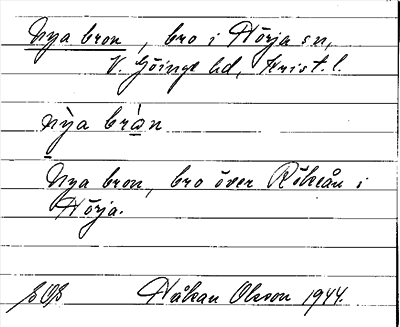 Nya bron, bro i Hörja sn,
V. Göinge hd, Krist. l.
nỳa brån
Nya bron, bro över Rökeån i
Hörja.
Håkan Olsson 1944.